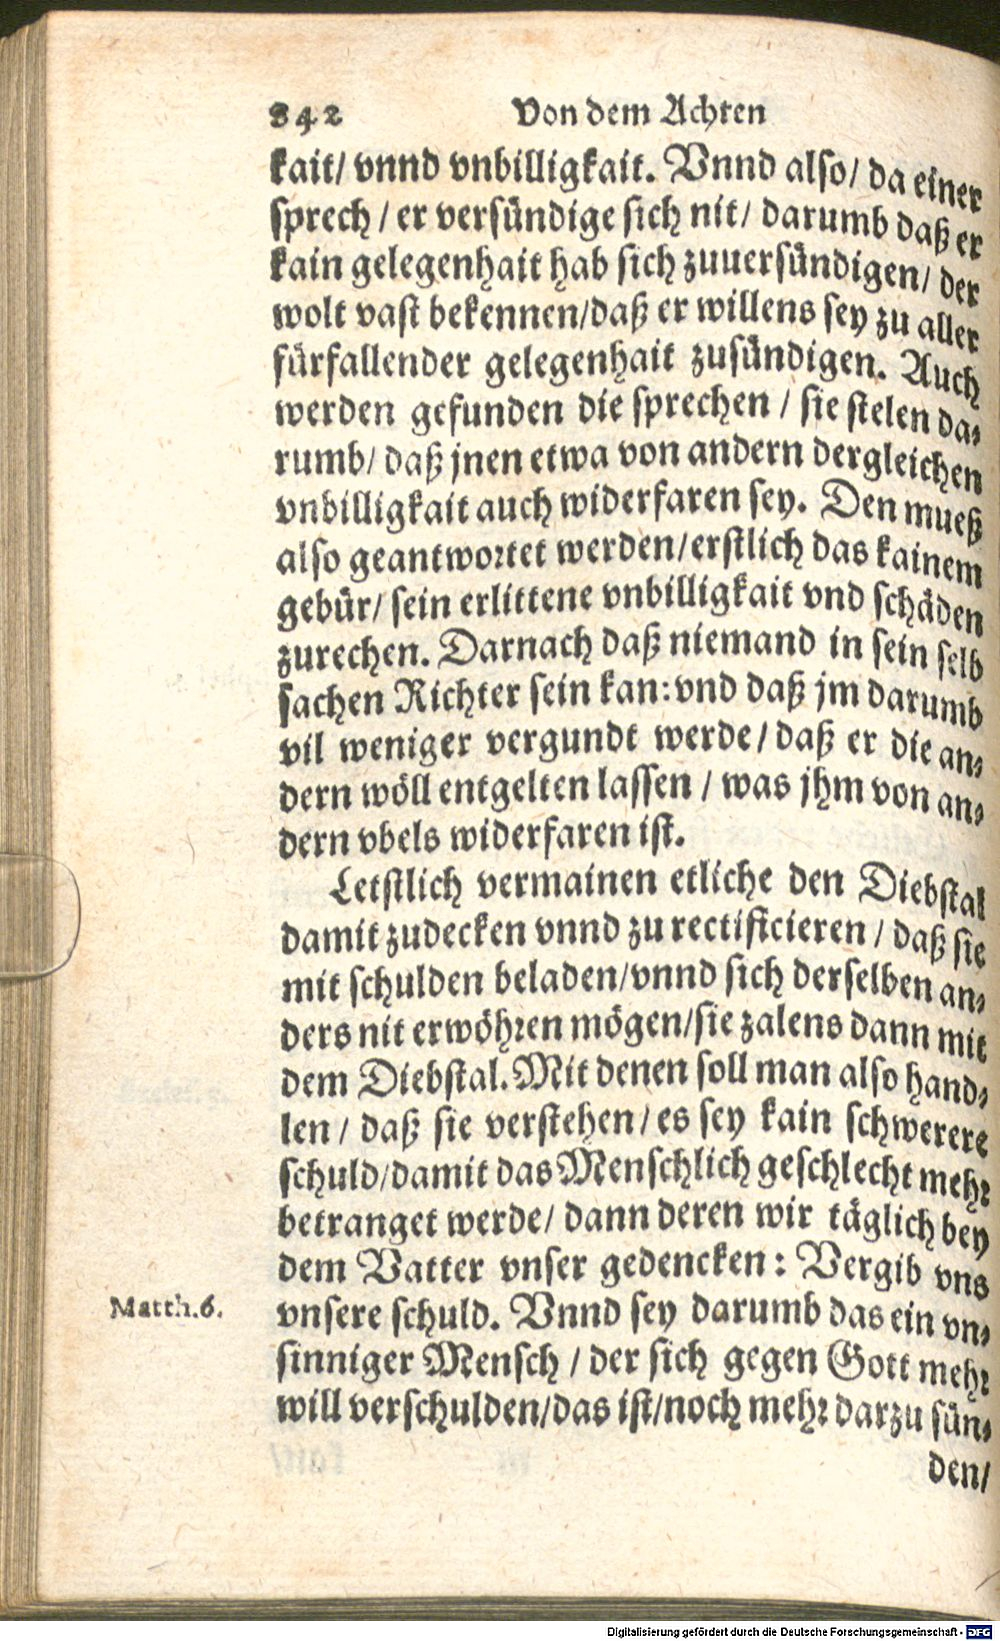 842 Von dem Achten
kait/ vnnd vnbilligkait. Vnnd also/ da einer
sprech / er versündige sich nit/ darumb daß er
kain gelegenhait hab sich zuuersündigen/ der
wolt vast bekennen/daß er willens sey zu aller
fürfallender gelegenhait zusündigen. Auch
werden gefunden die sprechen / sie stelen da-
rumb/ daß jnen etwa von andern dergleichen
vnbilligkait auch widerfaren sey. Den mueß
also geantwortet werden/erstlich das kainem
gebür/ sein erlittene vnbilligkait vnd schäden
zurechen. Darnach daß niemand in sein selb
sachen Richter sein kan: vnd daß jm darumb
vil weniger vergundt werde/ daß er die an-
dern wöll entgelten lassen / was jhm von an-
dern vbels widerfaren ist.
Letstlich vermainen etliche den Diebstal
damit zudecken vnnd zu rectificieren / daß sie
mit schulden beladen/vnnd sich derselben an-
ders nit erwöhren mögen/sie zalens dann mit
dem Diebstal. Mit denen soll man also hand-
len / daß sie verstehen/ es sey kain schwerere
schuld/damit das Menschlich geschlecht mehr
betranget werde/ dann deren wir täglich bey
dem Vatter vnser gedencken: Vergib vns
Matth.6. vnsere schuld. Vnnd sey darumb das ein vn-
sinniger Mensch / der sich gegen Gott mehr
will verschulden/das ist/noch mehr darzu sün-
den/
Digitalisierung gefördert durch die Deutsche Forschungsgemeinschaft - DFG